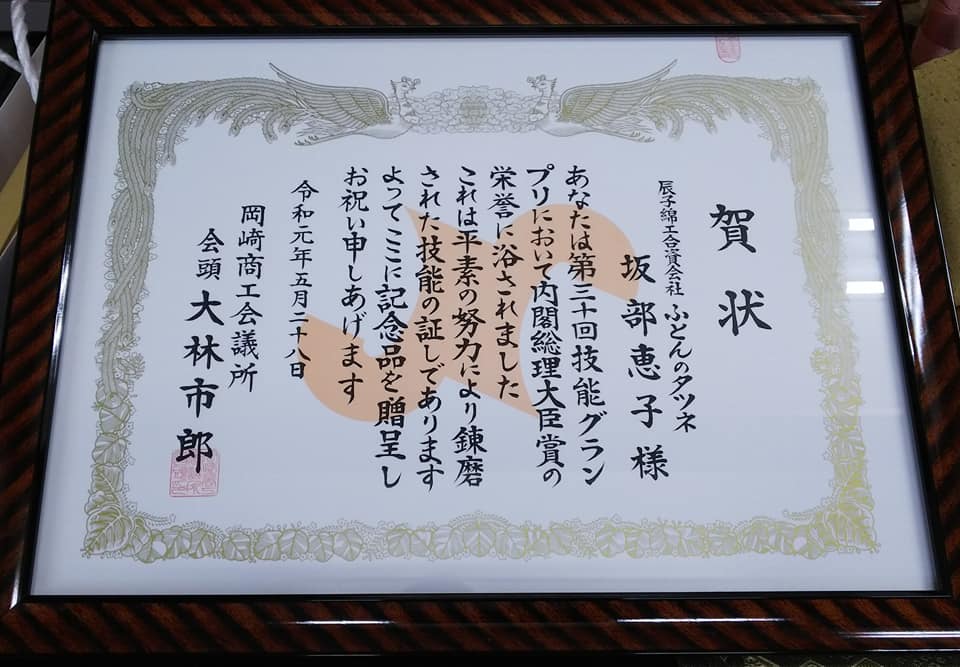 賀状
辰子綿工合資会社 ふとんのタツネ
坂部恵子様
あなたは第三十回技能グラン
プリにおいて内閣総理大臣賞の
栄誉に浴されました
これは平素の努力により錬磨
された技能の証しであります
よってここに記念品を贈呈し
お祝い申しあげます
令和元年五月二十八日
岡崎商工会議所
会頭 大林市郎